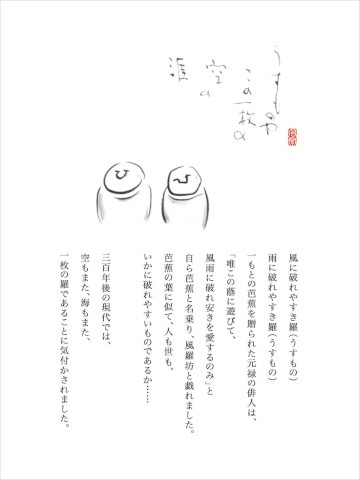 うすものや
この一枚の
空の
涯
風に破れやすき羅(うすもの)
雨に破れやすき羅(うすもの)
一もとの芭蕉を贈られた元禄の俳人は、
「唯この蔭に遊びて、
風雨に破れ安きを愛するのみ」と
自ら芭蕉と名乗り、風羅坊と戯れました。
芭蕉の葉に似て、人も世も、
いかに破れやすいものであるか……
三百年後の現代では、
空もまた、海もまた、
一枚の羅であることに気付かされました。